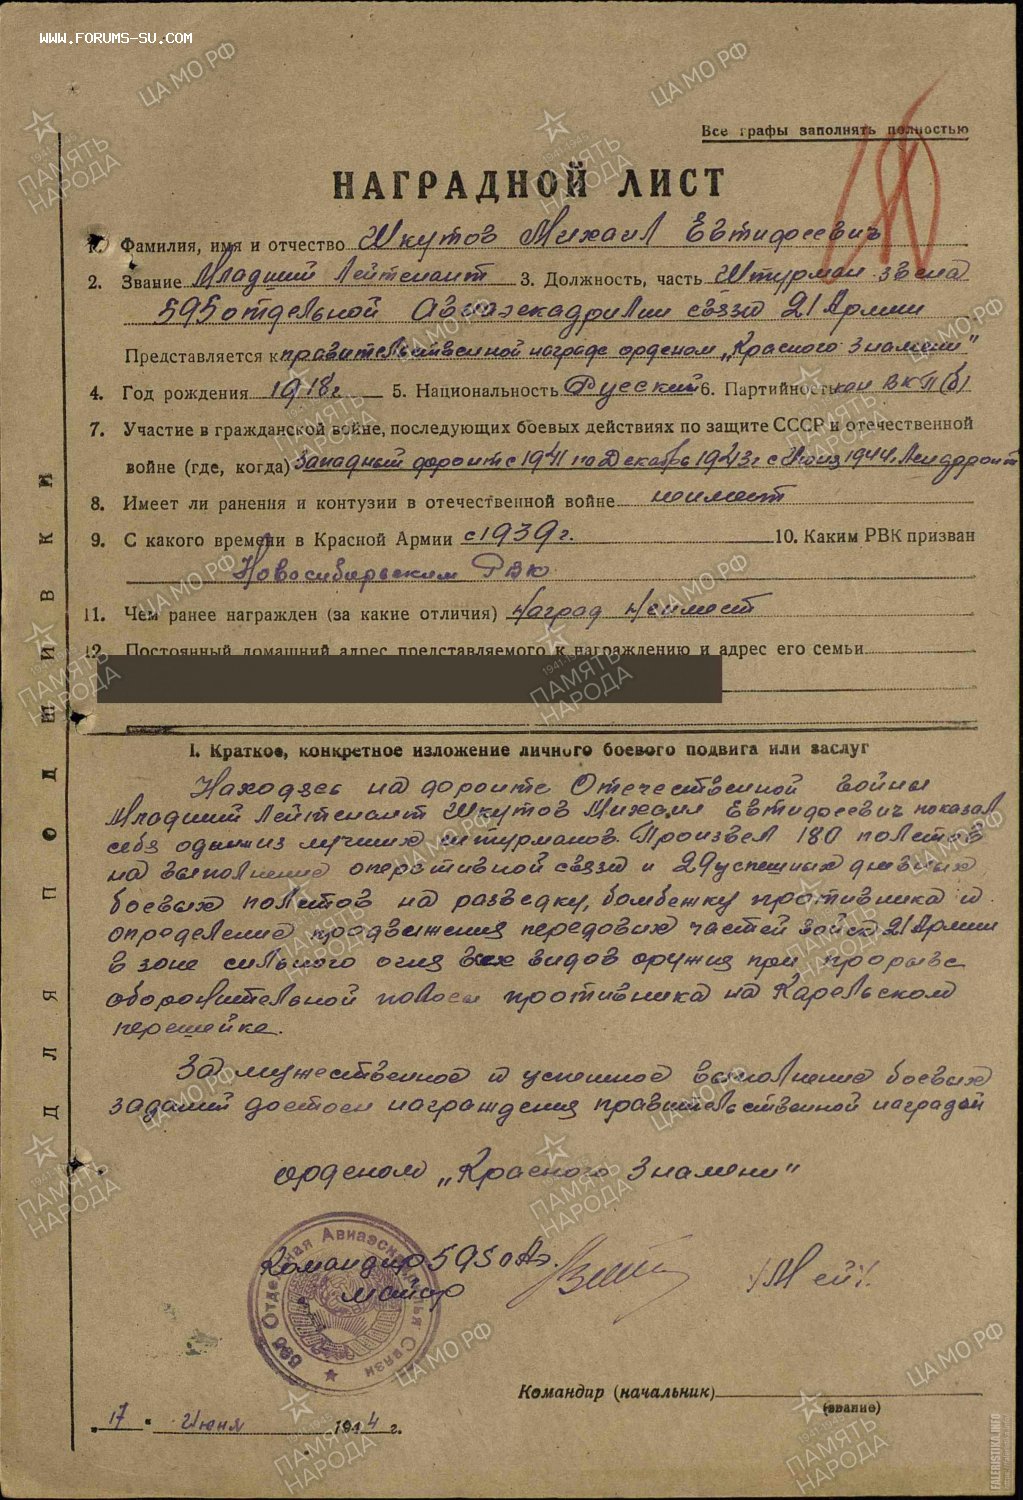 www.forums-su.com
Все графы заполнять полностью
НАГРАДНОЙ ЛИСТ
1. Фамилия, имя и отчество Шкутов Михаил Евтифеевич
2. Звание Младший Лейтенант 3. Должность, часть Штурман звена
595 отдельной Авиаэскадрилии связи 21 Армии
Представляется к правительственной награде орденом „Красного Знамени"
4. Год рождения 1918г 5. Национальность Русский 6. Партийность кан ВКП(б)
7. Участие в гражданской войне, последующих боевых действиях по защите СССР и отечественной
войне (где, когда) Западный фронт с 1941 по Декабрь 1943г с 1944 Ленфронт
8. Имеет ли ранения и контузии в отечественной войне неимеет
9. С какого времени в Красной Армии с 1939г. 10. Каким РВК призван
Новосибирским РВК
11. Чем ранее награжден (за какие отличия) Наград Неимеет
12. Постоянный домашний адрес представляемого к награждению и адрес его семьи
I. Краткое, конкретное изложение личного боевого подвига или заслуг
Находясь на фронте Отечественной войны
Младший Лейтенант Шкутов Михаил Евтифеевич показал
себя одним из лучших штурманов. Произвел 180 полетов
на выполнение оперативной связи и 29 успешных дневных
боевых полетов на разведку, бомбежку противника и
определение продвижения передовых частей войск 21 Армии
в зоне сильного огня всех видов оружия при прорыве
оборонительной полосы противника на Карельском
перешейке.
За мужественное и успешное выполнение боевых
заданий достоен награждения правительственной наградой
орденом „Красного Знамени"
Командир 595 ОАЭ.
майор /Мей/.
595 Отдельная Авиаэскадрилья Связи
Командир (начальник)
(звание)
„17" Июня 1944 г.
ДЛЯ ПОДШИВКИ
ПАМЯТЬ НАРОДА
1941-1945
ЦА МО РФ
FALERISTIKA.INFO